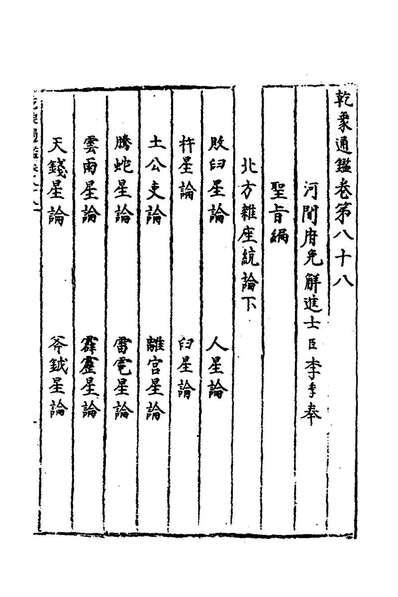 乾象通鑑卷第八十八
河間府免解進士臣李季奉
聖旨編
北方雜座統論下
敗臼星論　人星論
杵星論　臼星論
土公吏論　離宮星論
騰蛇星論　雷電星論
雲雨星論　霹靂星論
天錢星論　斧鉞星論